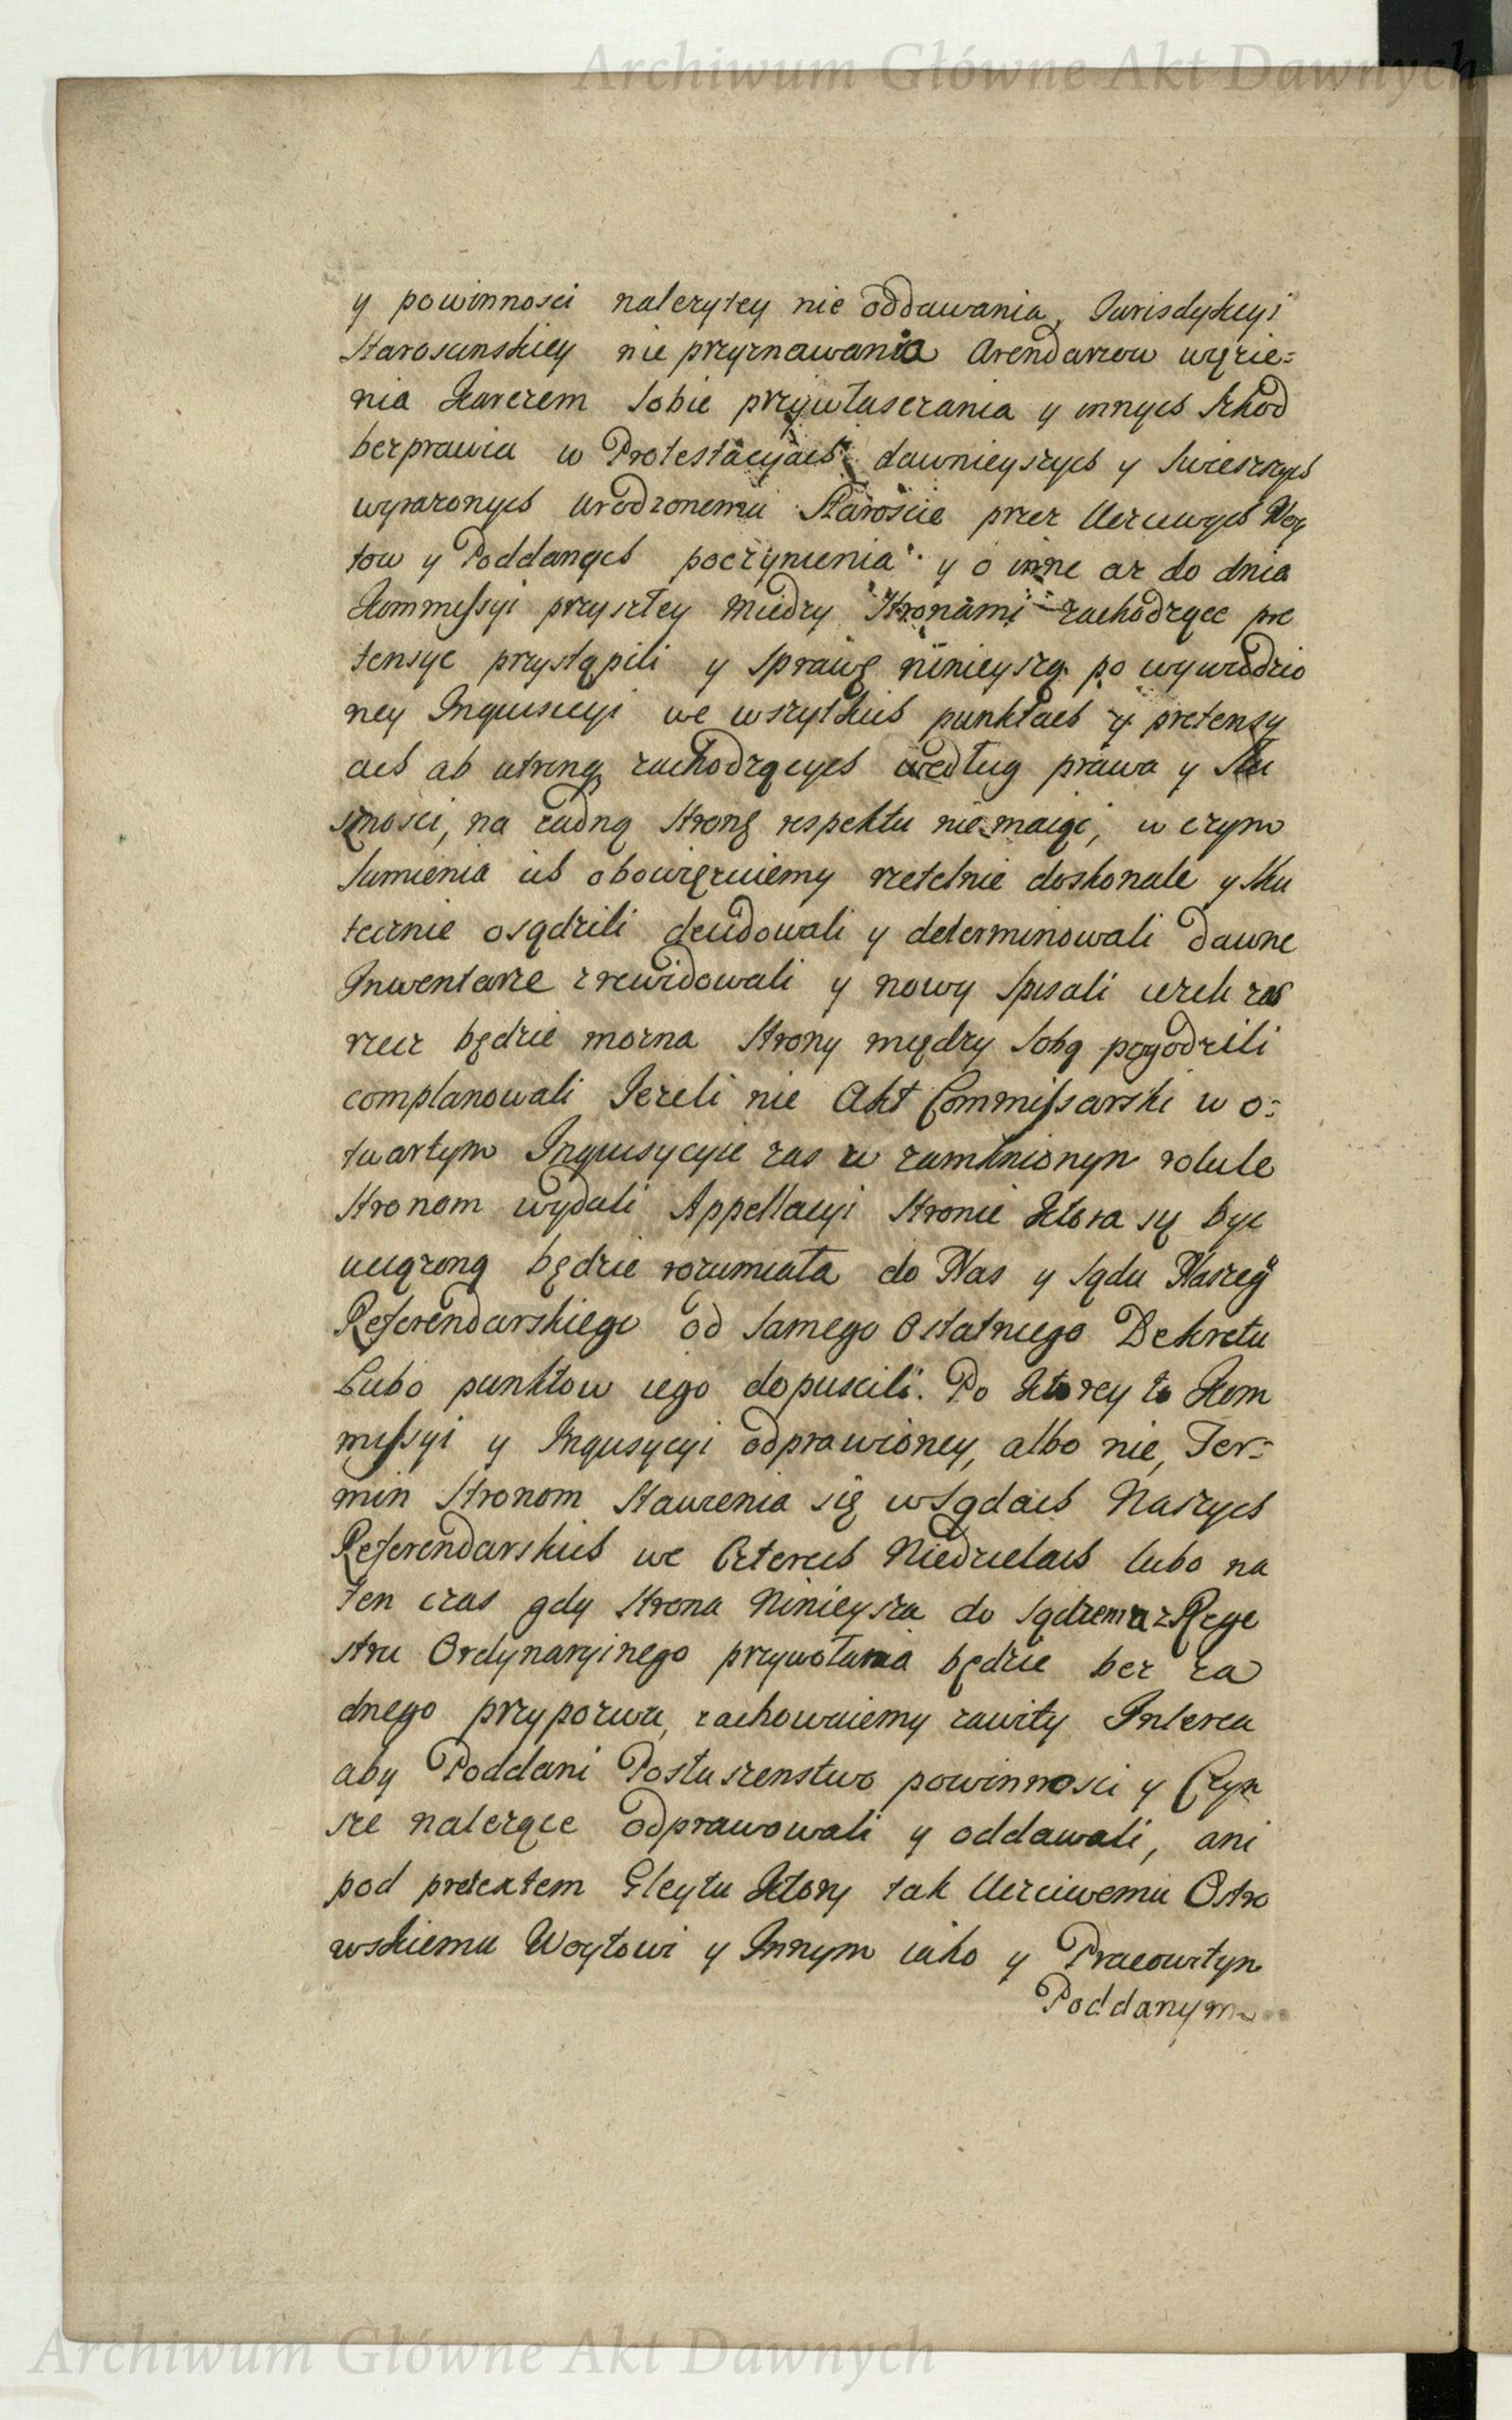 Archiwum Główne Akt Dawnych
y powinnosci nalezytey nie oddawania, Jurisdykcyi
Starosinskiey nie przyznawania Arendarzow więzie=
nia Karczem sobie przywłaszczania y innych szkod
bezprawia w Protestacyach dawnieyszych y swiezszych
wyrazonych Urodzonemu Staroscie przez Uczciwych Woy
tow y Poddanych poczynienia y o inne az do dnia
Kommissyi przyszłey miedzy Stronami zachodzące pre
tensye przystąpili y sprawę ninieyszą po wywiedzio
ney Inquisicyi we wszytkich punktach y pretensy
ach ab utrinq zachodzących według prawa y słu
sznosci, na zadną stronę respektu nie maiąc, w czym
sumienia ich obowięzuiemy rzetelnie doskonale y sku
tecznie osądzili decidowali y determinowali dawne
Inwentarze zrewidowali y nowy spisali iezeli zas
rzecz będzie mozna Strony mędzy sobą pogodzili
complanowali Jezeli nie Akt Commissarski w o=
twartym Inquisycyie zas w zamknionyn rotule
stronom wydali Appellacyi stronie ktora się byc
uciązoną będzie rozumiała do Nas y sądu Naszeg
Referendarskiego od samego Ostatniego Dekretu
Lubo punktow iego dopuscili. Po ktorey to Kom
missyi y Inqusycyi odprawioney, albo nie, Ter=
min Stronom stawienia się w sądach Naszych
Referendarskich we Czterech Niedzielach lubo na
ten czas gdy strona Ninieysza do sądzenia z Rege
stru Ordynaryinego przywołana będzie bez za
dnego przypozwu, zachowuiemy zawity Interea
aby Poddani Posłuszenstwo powinnosci y Czyn
sze nalezące odprawowali y oddawali, ani
pod pretextem Gleytu ktory tak Uczciwemu Ostro
wskiemu Woytowi y Innym iako y Pracowitym
Poddanym
Archiwum Główne Akt Dawnych